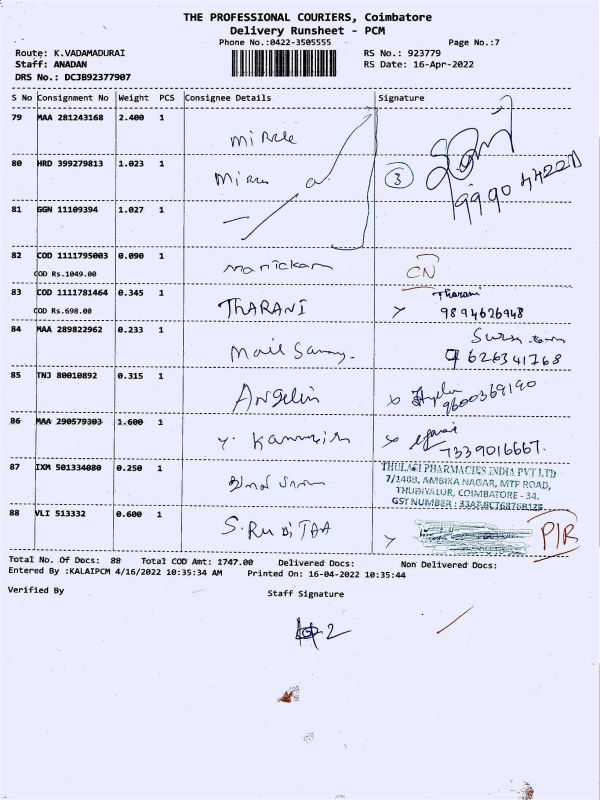 THE PROFESSIONAL COURIERS, Coimbatore
Delivery Runsheet - PCM
Phone No.:0422-3505555 Page No.:7
Route: K.VADAMADURAI RS No.: 923779
Staff: ANADAN RS Date: 16-Apr-2022
DRS No.: DCJB92377907
S No Consignment No Weight PCS Consignee Details Signature
79 MAA 281243168 2.400 1
80 HRD 399279813 1.023 1 3
81 GGN 11109394 1.027 1
82 COD 1111795003 0.090 1 Manickam CN
COD Rs.1049.00
83 COD 1111781464 0.345 1 THARANI Tharani
COD Rs.698.00 9894626948
84 MAA 289822962 0.233 1 Mail Samy.
9626341768
85 TNJ 80010892 0.315 1 Angelin 9600369190
86 MAA 290579303 1.600 1
7339016667.
87 IXM 501334080 0.250 1 THULASI PHARMACIES INDIA PVT LTD
7/140B, AMBIKA NAGAR, MTP ROAD,
THUDIYALUR, COIMBATORE - 34.
GST NUMBER :
88 VLI 513332 0.600 1 P/R
Total No. Of Docs: 88 Total COD Amt: 1747.00 Delivered Docs: Non Delivered Docs:
Entered By :KALAIPCM 4/16/2022 10:35:34 AM Printed On: 16-04-2022 10:35:44
Verified By Staff Signature